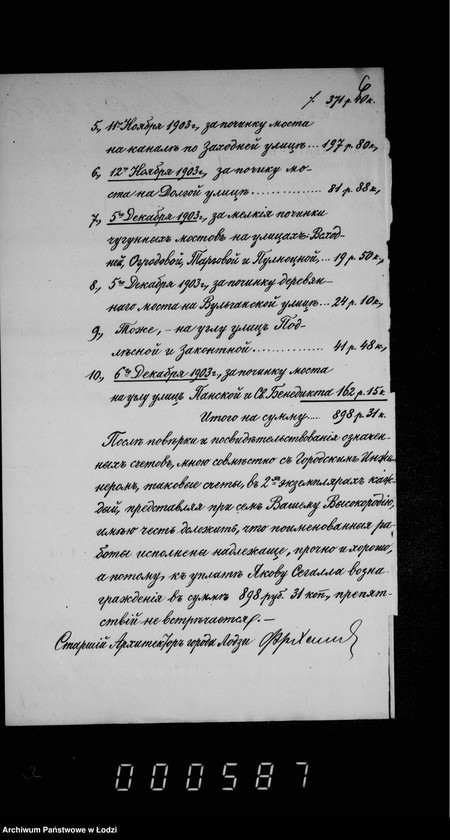 6
371 р. 40 к.
5, 11го Ноября 1903 г., за починку моста
на каналѣ по Заходней улицѣ... 197 р. 80 к.,
6, 12го Ноября 1903 г., за почику мо-
ста на Долгой улицѣ .............. 81 р. 38 к.,
7, 5го Декабря 1903 г., за мелкія починки
чугунныхъ мостовъ на улицахъ: Всход-
ней, Огродовой, Тарговой и Пулноцной,... 19 р. 50 к.,
8, 5го Декабря 1903 г., за починку деревян-
наго моста на Вульчанской улицѣ... 24 р. 10 к.,
9, Тоже, - на углу улицъ Под-
лѣсной и Закантной .............. 41 р. 48 к.,
10, 6го Декабря 1903 г., за починку моста
на углу улицъ Панской и Св. Бенедикта 162 р. 15 к.
Итого на сумму..... 898 р. 31 к.
Послѣ повѣрки и посвидѣтельствованія означен-
ныхъ счетовъ, мною совмѣстно съ Городскимъ Инже-
неромъ, таковые счеты, въ 2хъ экземплярахъ каж-
дый, представляя при семъ Вашему Высокородію,
имѣю честь доложить, что поименованныя ра-
боты исполнены надлежаще, прочно и хорошо,
а потому, къ уплатѣ Якову Сегалла возна-
гражденія въ суммѣ 898 руб. 31 коп., препят-
ствій не встрѣчается. —
Старшій Архитекторъ города Лодзи
000587
Archiwum Państwowe w Łodzi